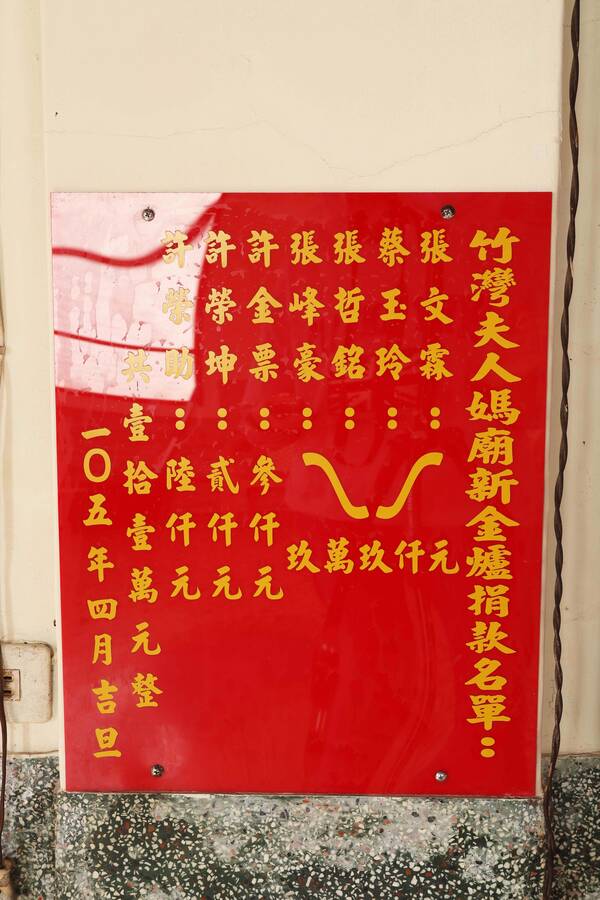 竹灣夫人媽廟新金爐捐款名單：
張文霖：
蔡玉玲：
張哲銘：
張峰豪：
玖萬玖仟元
許金票：參仟元
許榮坤：貳仟元
許榮助：陸仟元
共壹拾壹萬元整
一○五年四月吉旦